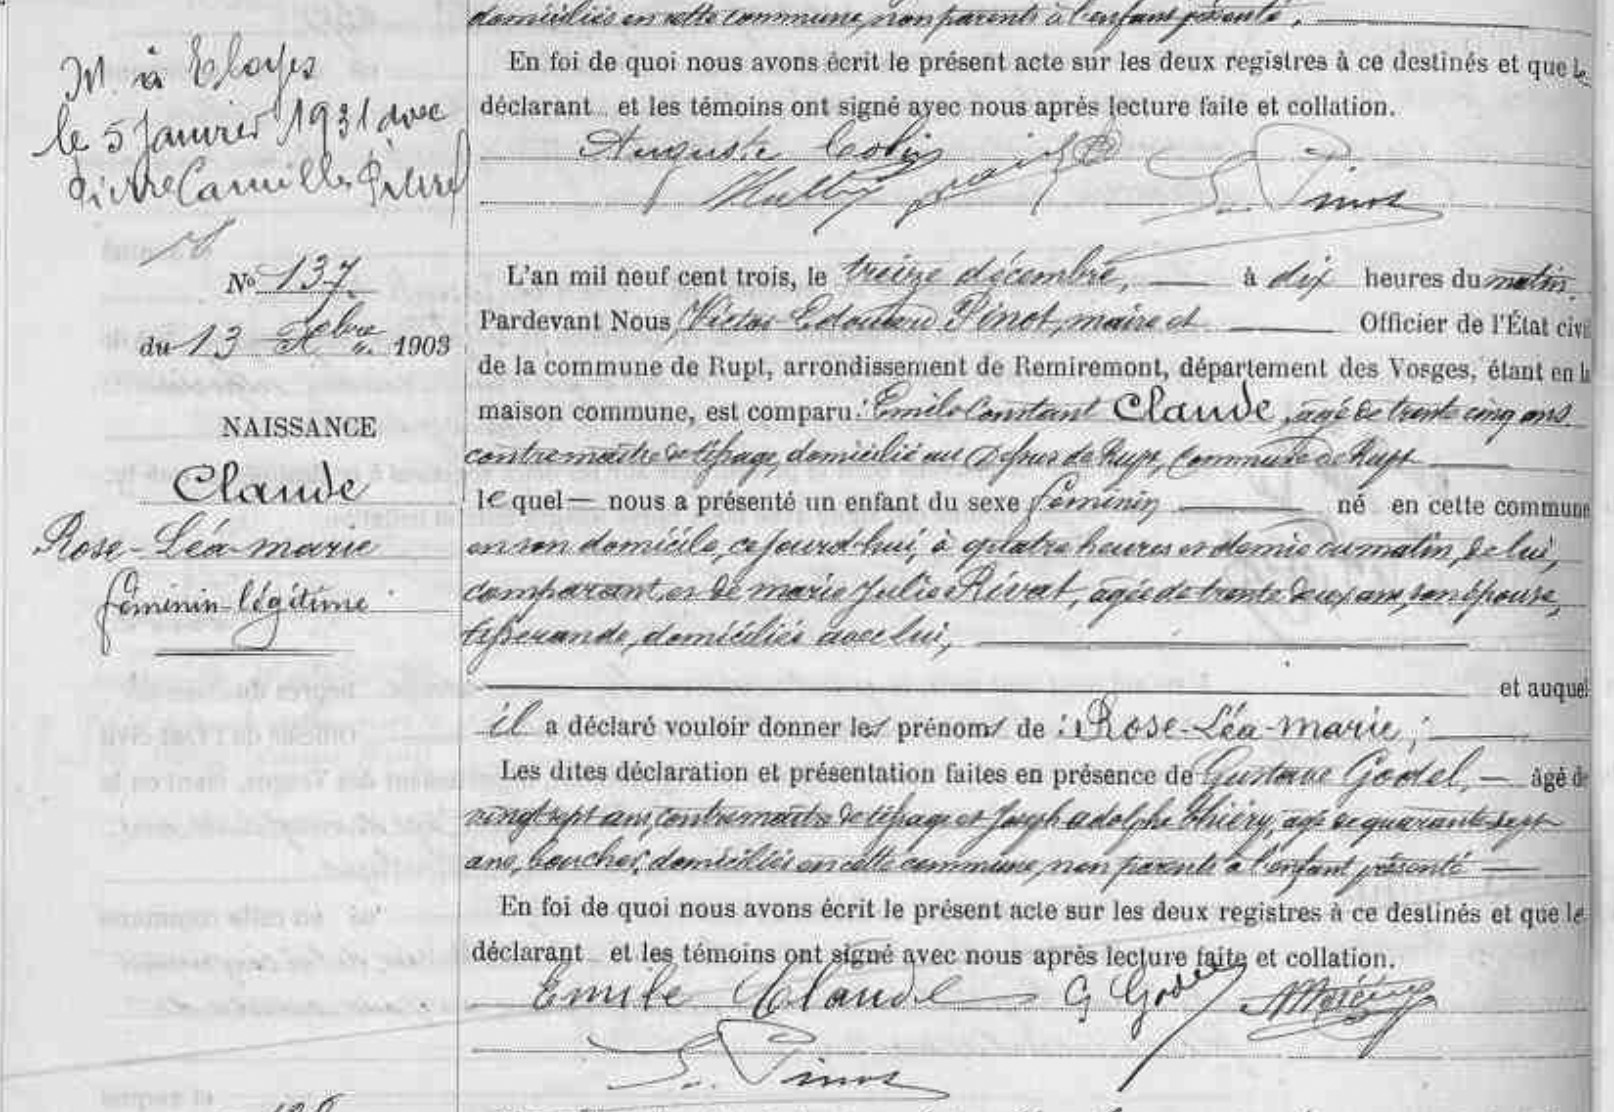 domiciliés en cette commune, non parents à l'enfant présenté.
En foi de quoi nous avons écrit le présent acte sur les deux registres à ce destinés et que le
déclarant et les témoins ont signé avec nous après lecture faite et collation.
Auguste Colin
E. Pinot
M. à Eloyes
le 5 Janvier 1931 avec
Pierre Camille Pierrel
No 137
du 13 Xbre 1903
NAISSANCE
Claude
Rose-Léa-marie
féminin-légitime
L'an mil neuf cent trois, le treize décembre, à dix heures du matin.
Pardevant Nous, Victor Edouard Pinot, maire et Officier de l'État civil
de la commune de Rupt, arrondissement de Remiremont, département des Vosges, étant en la
maison commune, est comparu : Emile Constant Claude, agé de trente cinq ans
contremaître de tissage, domicilié au Dessus de Rupt, Commune de Rupt
lequel nous a présenté un enfant du sexe féminin né en cette commune
en son domicile, ce jourd'hui, à quatre heures et demie du matin, de lui,
comparant, et de marie Julie Rivat, agée de trente deux ans, son épouse,
tisserande, domiciliée avec lui,
et auquel
il a déclaré vouloir donner les prénoms de : Rose-Léa-marie ;
Les dites déclaration et présentation faites en présence de Gustave Godel, âgé de
vingt sept ans, contremaître de tissage et Joseph adolphe thiéry, agé de quarante-sept
ans, boucher, domiciliés en cette commune, non parents à l'enfant présenté
En foi de quoi nous avons écrit le présent acte sur les deux registres à ce destinés et que le
déclarant et les témoins ont signé avec nous après lecture faite et collation.
Emile Claude G Godel
E. Pinot